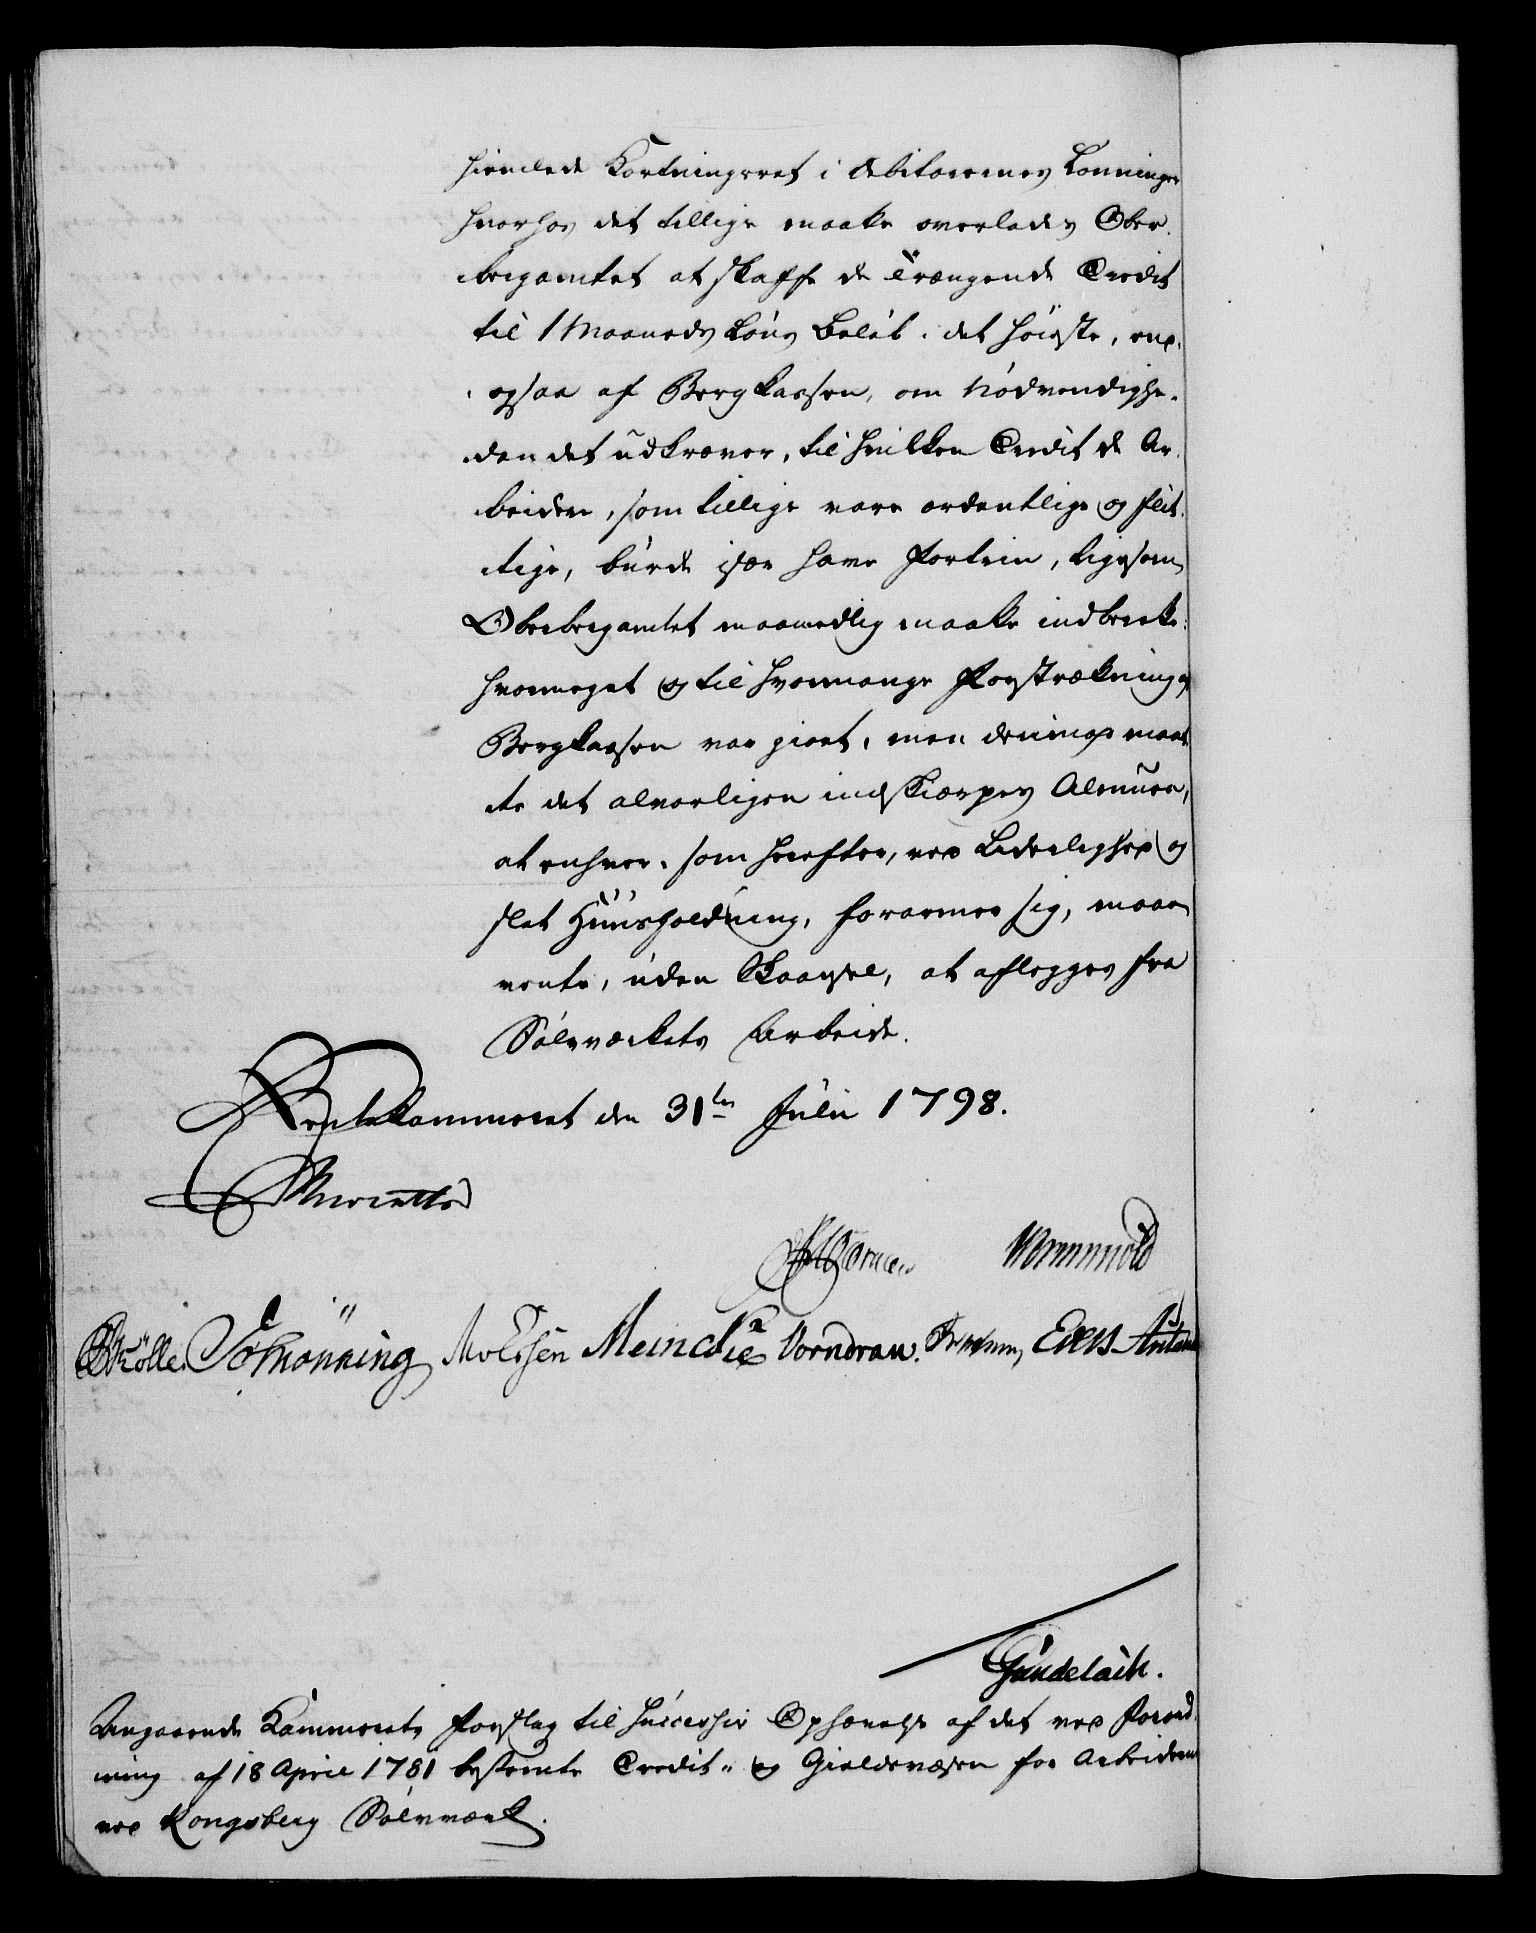 hiemlede Kortningsret i Debitorernes Lønninger
hvorhos det tillige maatte overlades Ober-
bergamtet at skaffe de Trængende Credit
til 1 Maaneds Løns Beløb i det høieste, ved
ogsaa af Bergkassen, om Nødvendighe-
den det udkræver, til hvilken Credit de Ar-
beidere, som tillige vare ordentlige og flit-
tige, burde især have Fortrin, ligesom
Oberbergamtet maanedlig maatte indberette
hvormeget og til hvormange Forstrækning af
Bergkassen var giort, men derimod maat-
te det alvorligen indskiærpes Almuen,
at enhver, som herefter, ved Liderlighed og
slet Huusholdning, forarmer sig, maae
vente, uden Skaansel, at aflægges fra
Sølvværkets Arbeide.
Rentekammeret den 31te Julii 1798.
Wormskiold
Schønning Meincke Vorndran. Evers
Gundelach.
Angaaende Kammerets Forslag til successiv Ophævelse af det ved Forord-
ning af 18 April 1781 bestemte Credit- og Gieldsvæsen for Arbeiderne
ved Kongsberg Sølvværk.